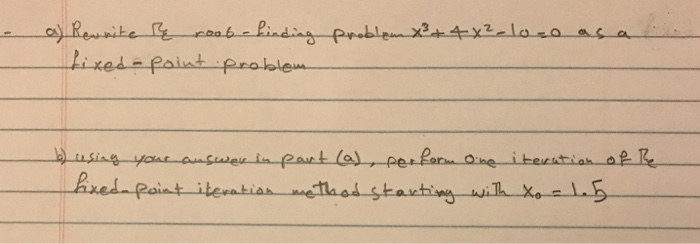 a) Rewrite The root-finding problem x³+4x²-10=0 as a
fixed-point problem
b) using your answer in part (a), perform one iteration of The
fixed-point iteration method starting with x₀ = 1.5